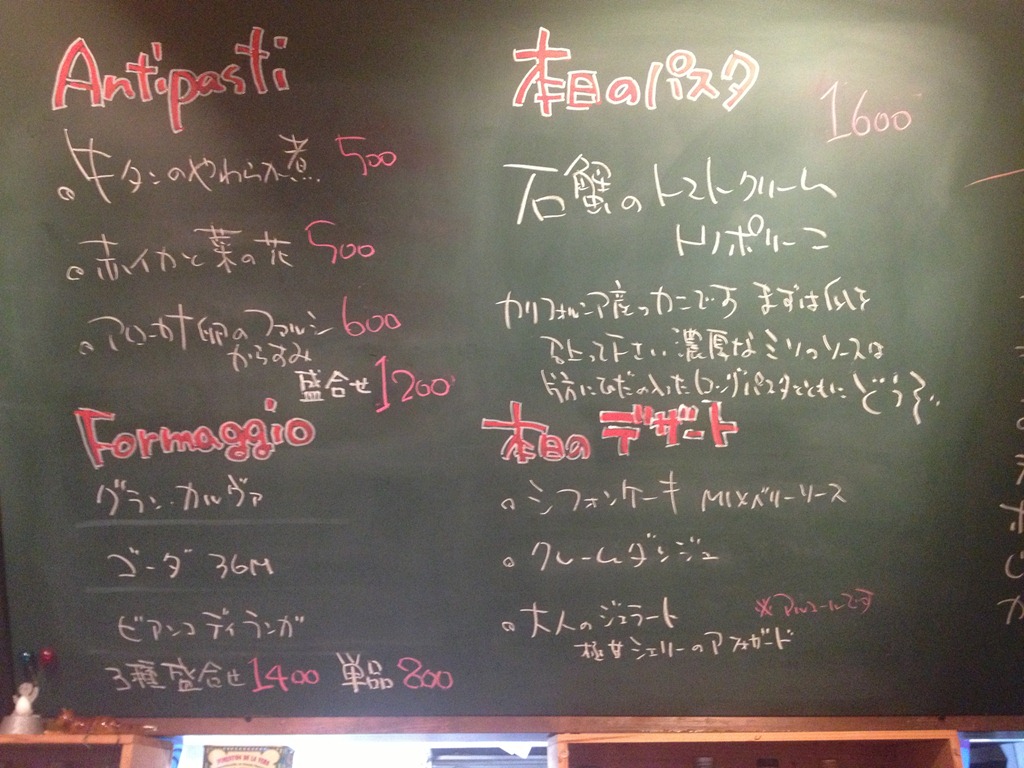 Antipasti
牛タンのやわらか煮 500
赤イカと菜の花 500
アロカナ卵のファルシ 600
からすみ
盛合せ 1200
Formaggio
グラン・カルヴァ
ゴーダ 36M
ビアンコディランガ
3種盛合せ 1400 単品 800
本日のパスタ
1600
石蟹のトマトクリーム
トリポリーニ
カリフォルニア産のカニです まずは爪を
濃厚なミソのソースは
片方にひだの入ったロングパスタとともにどうぞ..
本日のデザート
シフォンケーキ MIXベリーソース
クレームダンジュ
大人のジェラート ※アルコールです
極甘シェリーのアフォガード